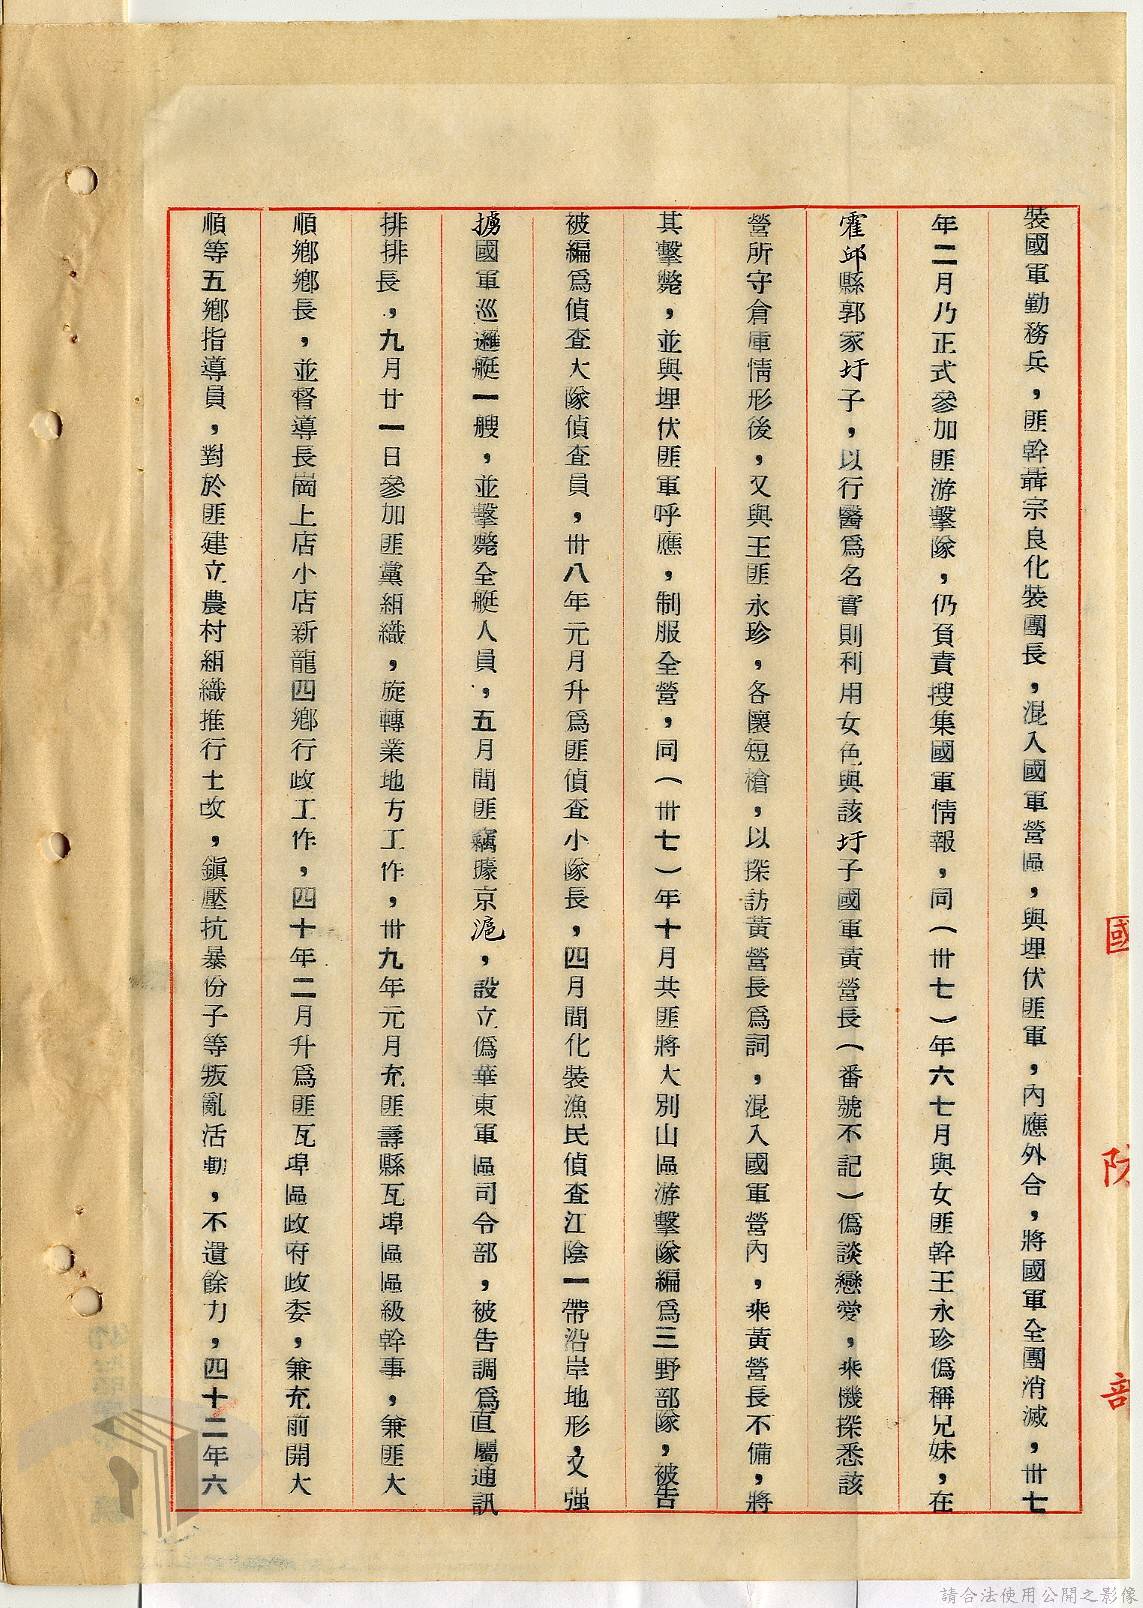 裝國軍勤務兵，匪幹聶宗良化裝團長，混入國軍營區，與埋伏匪軍，內應外合，將國軍全團消滅，卅七
年二月乃正式參加匪游擊隊，仍負責搜集國軍情報，同（卅七）年六七月與女匪幹王永珍偽稱兄妹，在
霍邱縣郭家圩子，以行醫為名實則利用女色與該圩子國軍黃營長（番號不記）偽談戀愛，乘機探悉該
營所守倉庫情形後，又與王匪永珍，各懷短槍，以探訪黃營長為詞，混入國軍營內，乘黃營長不備，將
其擊斃，並與埋伏匪軍呼應，制服全營，同（卅七）年十月共匪將大別山區游擊隊編為三野部隊，被告
被編為偵查大隊偵查員，卅八年元月升為匪偵查小隊長，四月間化裝漁民偵查江陰一帶沿岸地形，又強
擄國軍巡邏艇一艘，並擊斃全艇人員，五月間匪竊據京滬，設立偽華東軍區司令部，被告調為直屬通訊
排排長，九月廿一日參加匪黨組織，旋轉業地方工作，卅九年元月充匪壽縣瓦埠區區級幹事，兼匪大
順鄉鄉長，並督導長崗上店小店新龍四鄉行政工作，四十年二月升為匪瓦埠區政府政委，兼充前開大
順等五鄉指導員，對於匪建立農村組織推行土改，鎮壓抗暴份子等叛亂活動，不遺餘力，四十二年六
國防部
請合法使用公開之影像